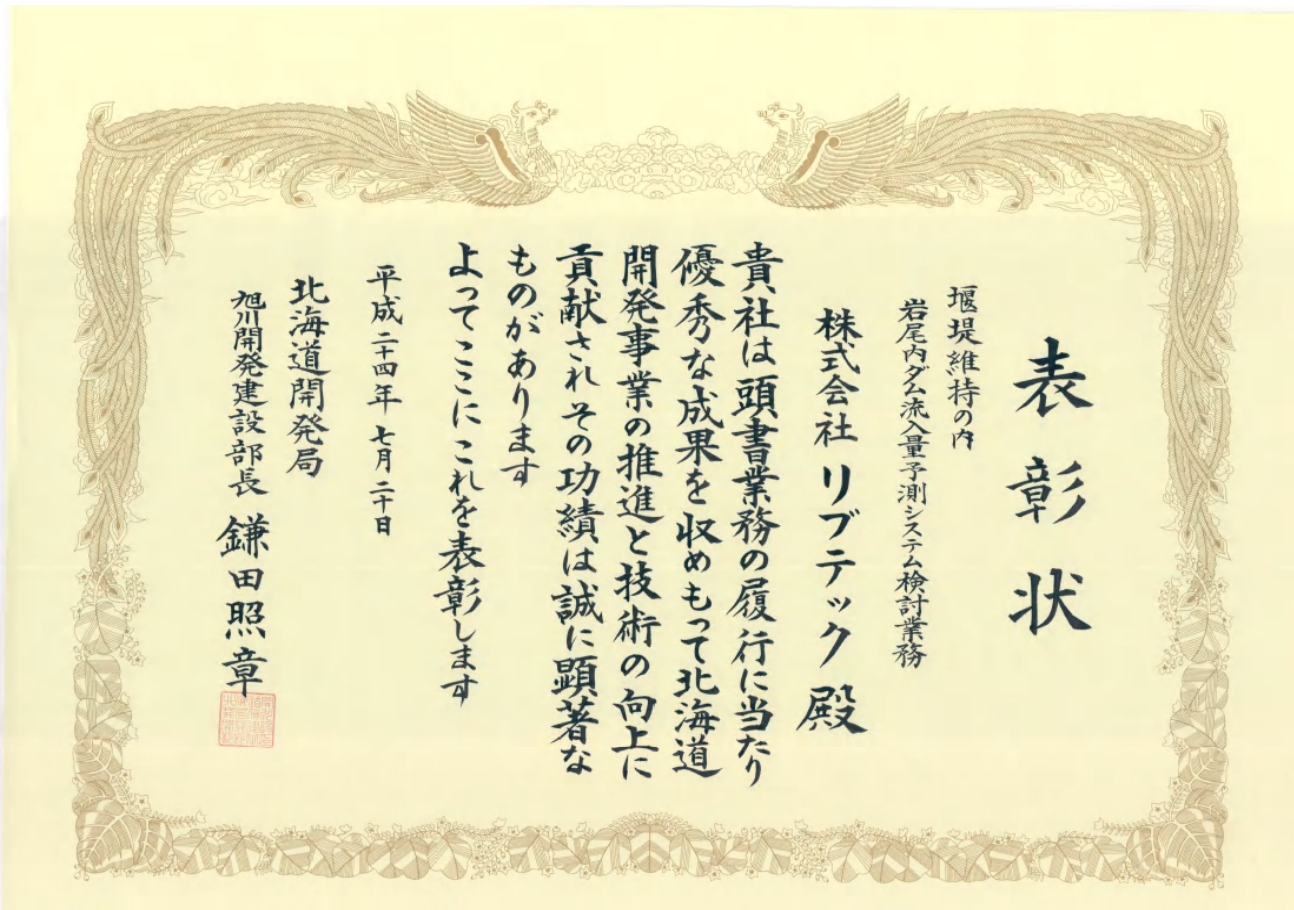 表彰状
堰堤維持の内
岩尾内ダム流入量予測システム検討業務
株式会社 リブテック 殿
貴社は頭書業務の履行に当たり
優秀な成果を収めもって北海道
開発事業の推進と技術の向上に
貢献されその功績は誠に顕著な
ものがあります
よってここにこれを表彰します
平成二十四年 七月 二十日
北海道開発局
旭川開発建設部長 鎌田照章